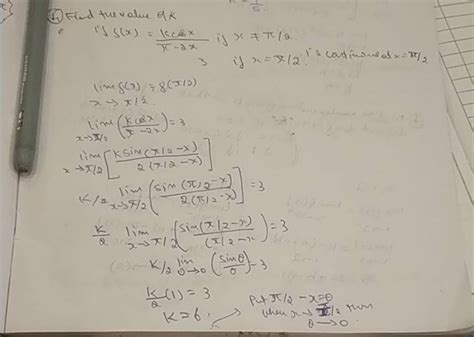 Find the value of K
if f(x) = kcosx / π-2x if x ≠ π/2
3 if x = π/2 is continuous at x = π/2
lim f(x) = f(π/2)
x→π/2
lim x→π/2 (kcosx / π-2x) = 3
lim x→π/2 [k sin(π/2-x) / 2(π/2-x)]
K/2 lim x→π/2 [sin(π/2-x) / 2(π/2-x)] = 3
K/2 lim x→π/2 (sin(π/2-x) / (π/2-x) = 3
K/2 lim θ→0 (sinθ / θ) = 3
K/2 (1) = 3
K = 6.
Put π/2 - x = θ
when x → π/2 then
θ → 0.